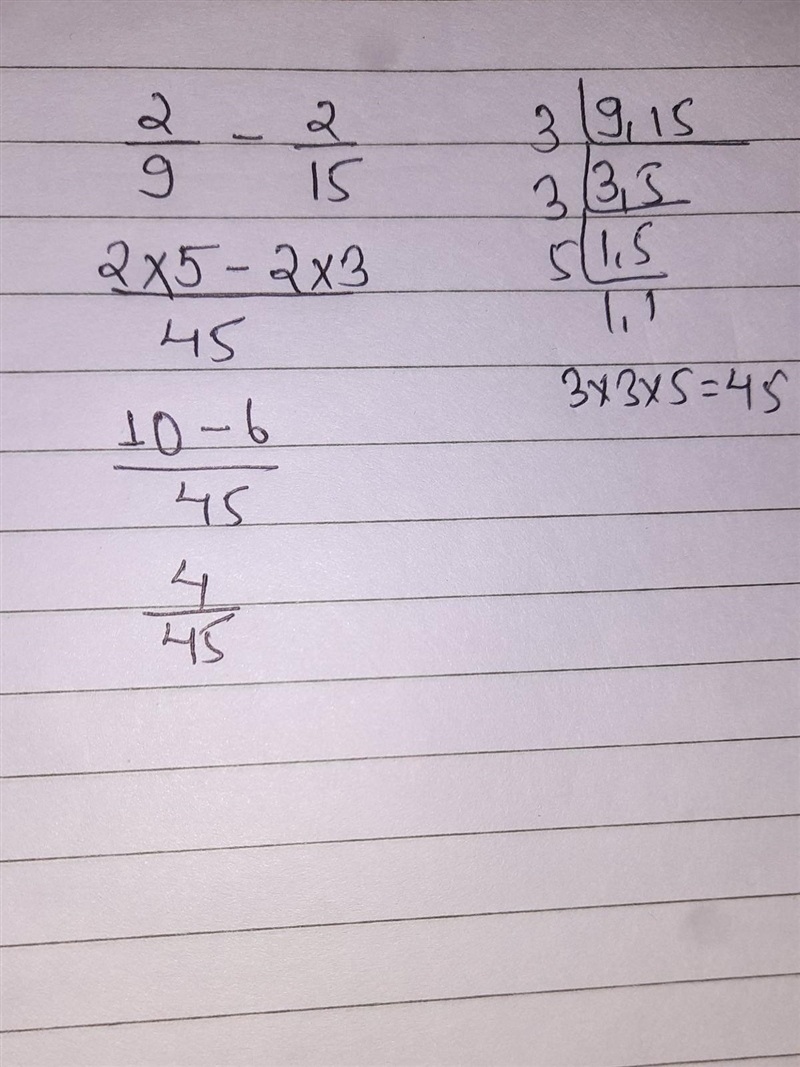 2/9 - 2/15
2×5 - 2×3 / 45
10 - 6 / 45
4/45
3 | 9, 15
3 | 3, 5
5 | 1, 5
1, 1
3×3×5=45